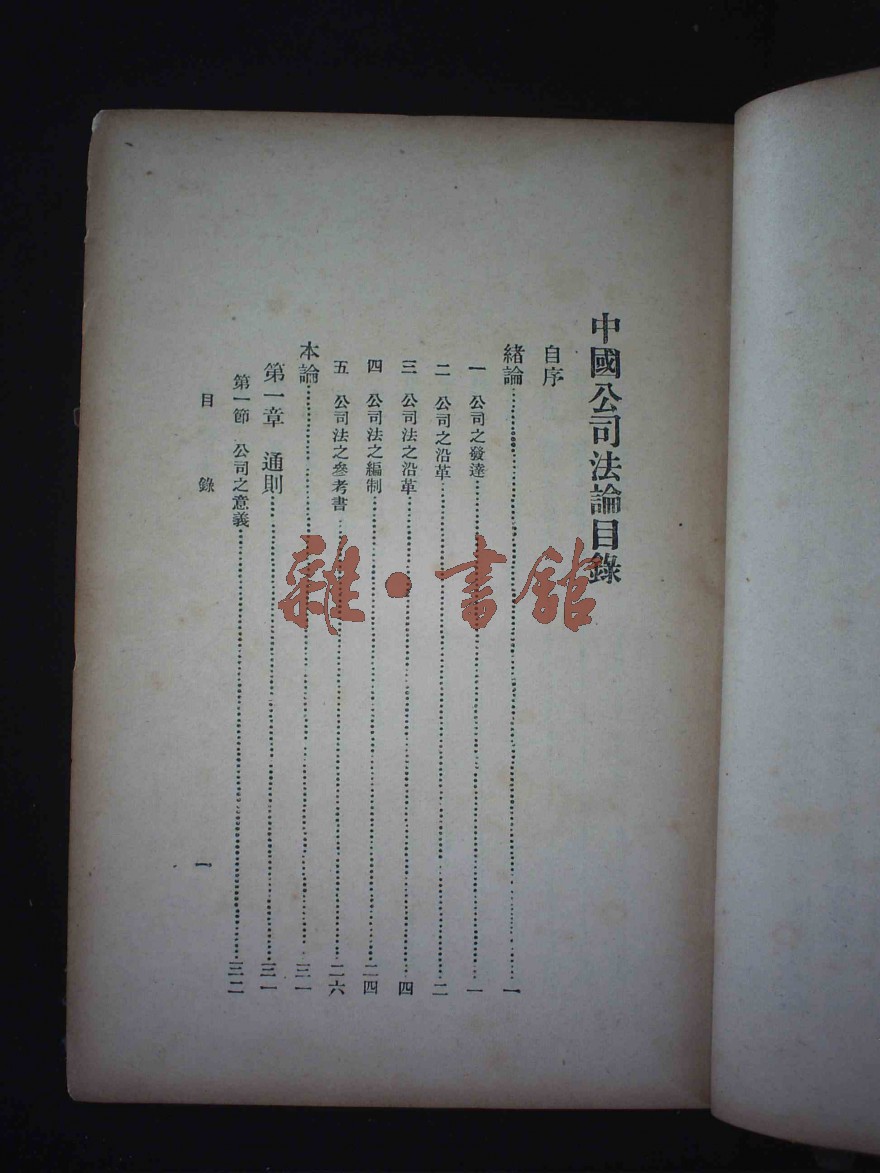 中國公司法論目錄
自序
緒論……一
一 公司之發達……一
二 公司之沿革……二
三 公司法之沿革……四
四 公司法之編制……二四
五 公司法之參考書……二六
本論……三一
第一章 通則……三一
第一節 公司之意義……三二
目錄
一
雜·書館